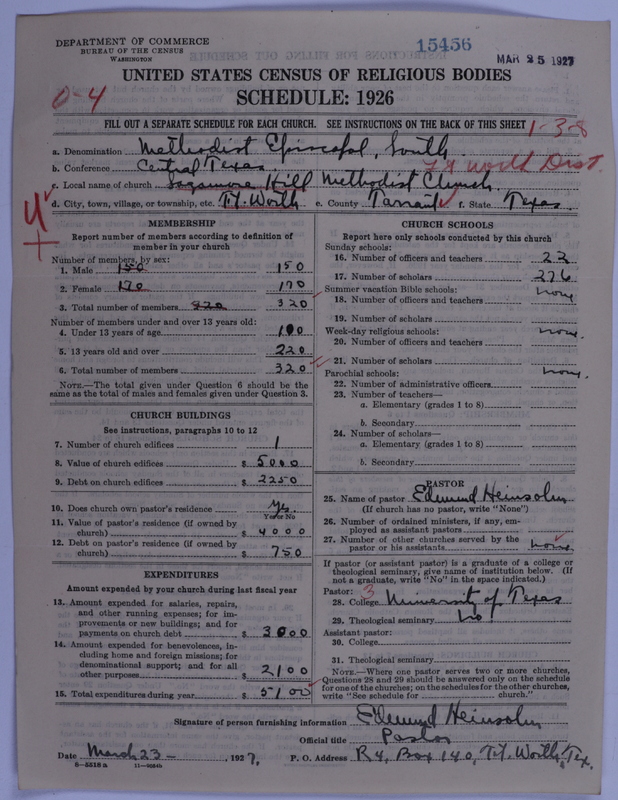 DEPARTMENT OF COMMERCE
BUREAU OF THE CENSUS
WASHINGTON
15456
MAR 25 1927
UNITED STATES CENSUS OF RELIGIOUS BODIES
SCHEDULE: 1926
0-4
FILL OUT A SEPARATE SCHEDULE FOR EACH CHURCH. SEE INSTRUCTIONS ON THE BACK OF THIS SHEET
1-3-8
a. Denomination Methodist Episcopal, South
b. Conference Central Texas
Ft Worth Dist.
c. Local name of church Sagamore Hill Methodist Church
d. City, town, village, or township, etc. Ft. Worth e. County Tarrant f. State Texas
MEMBERSHIP
Report number of members according to definition of
member in your church
Number of members, by sex:
1. Male 150 150
2. Female 170 170
3. Total number of members 320 320
Number of members under and over 13 years old:
4. Under 13 years of age 100
5. 13 years old and over 220
6. Total number of members 320
NOTE.—The total given under Question 6 should be the
same as the total of males and females given under Question 3.
CHURCH BUILDINGS
See instructions, paragraphs 10 to 12
7. Number of church edifices 1
8. Value of church edifices $ 5000
9. Debt on church edifices $ 2250
10. Does church own pastor's residence Yes
Yes or No
11. Value of pastor's residence (if owned by
church) $ 4000
12. Debt on pastor's residence (if owned by
church) $ 750
EXPENDITURES
Amount expended by your church during last fiscal year
13. Amount expended for salaries, repairs,
and other running expenses; for im-
provements or new buildings; and for
payments on church debt $ 3000
14. Amount expended for benevolences, in-
cluding home and foreign missions; for
denominational support; and for all
other purposes $ 2100
15. Total expenditures during year $ 5100
CHURCH SCHOOLS
Report here only schools conducted by this church
Sunday schools:
16. Number of officers and teachers 22
17. Number of scholars 276
Summer vacation Bible schools: none
18. Number of officers and teachers
19. Number of scholars
Week-day religious schools: none.
20. Number of officers and teachers
21. Number of scholars
Parochial schools: none.
22. Number of administrative officers
23. Number of teachers—
a. Elementary (grades 1 to 8)
b. Secondary
24. Number of scholars—
a. Elementary (grades 1 to 8)
b. Secondary
PASTOR
25. Name of pastor Edmund Heinsohn
(If church has no pastor, write "None")
26. Number of ordained ministers, if any, em-
ployed as assistant pastors
27. Number of other churches served by the
pastor or his assistants none
If pastor (or assistant pastor) is a graduate of a college or
theological seminary, give name of institution below. (If
not a graduate, write "No" in the space indicated.)
Pastor: 3
28. College University of Texas
29. Theological seminary No
Assistant pastor:
30. College
31. Theological seminary
NOTE.—Where one pastor serves two or more churches,
Questions 28 and 29 should be answered only on the schedule
for one of the churches; on the schedules for the other churches,
write "See schedule for church."
Signature of person furnishing information Edmund Heinsohn
Official title Pastor
Date March 23 —, 1927, P. O. Address R4, Box 140, Ft. Worth, Tex.
8—5518 a 11—9054b